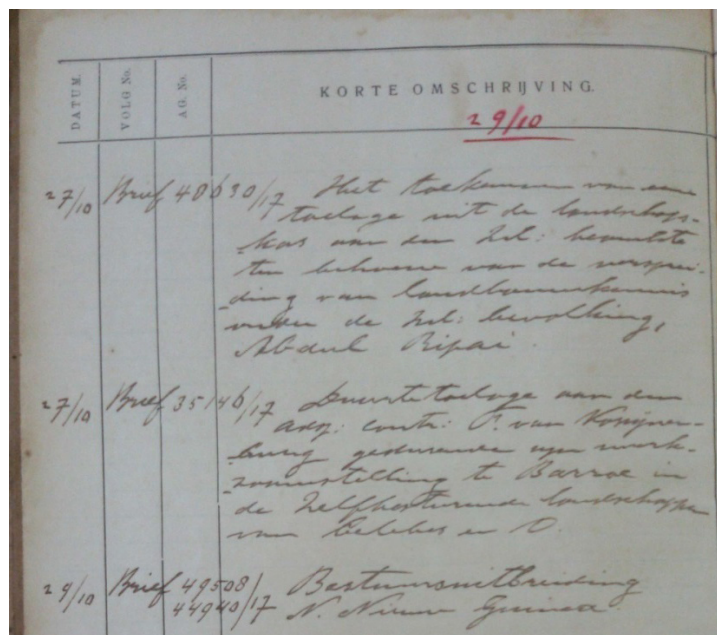 DATUM. VOLG No. AG. No. KORTE OMSCHRIJVING.
29/10
27/10 Brief 48630/17 Het toekennen van eene
toelage uit de landschaps-
kas aan den Inl: beambte
ten behoeve van de versprei-
ding van landbouwkennis
onder de Inl: bevolking,
Abdul Ripai.
27/10 Brief 35146/17 Duurtetoelage aan den
adsp: contr: F. van Konijnen-
burg gedurende zijn werk-
zaamstelling te Barroe in
de Zelfbesturende landschappen
van Celebes en O.
29/10 Brief 49508/ Bestuursuitbreiding
44940/17 N. Nieuw Guinea